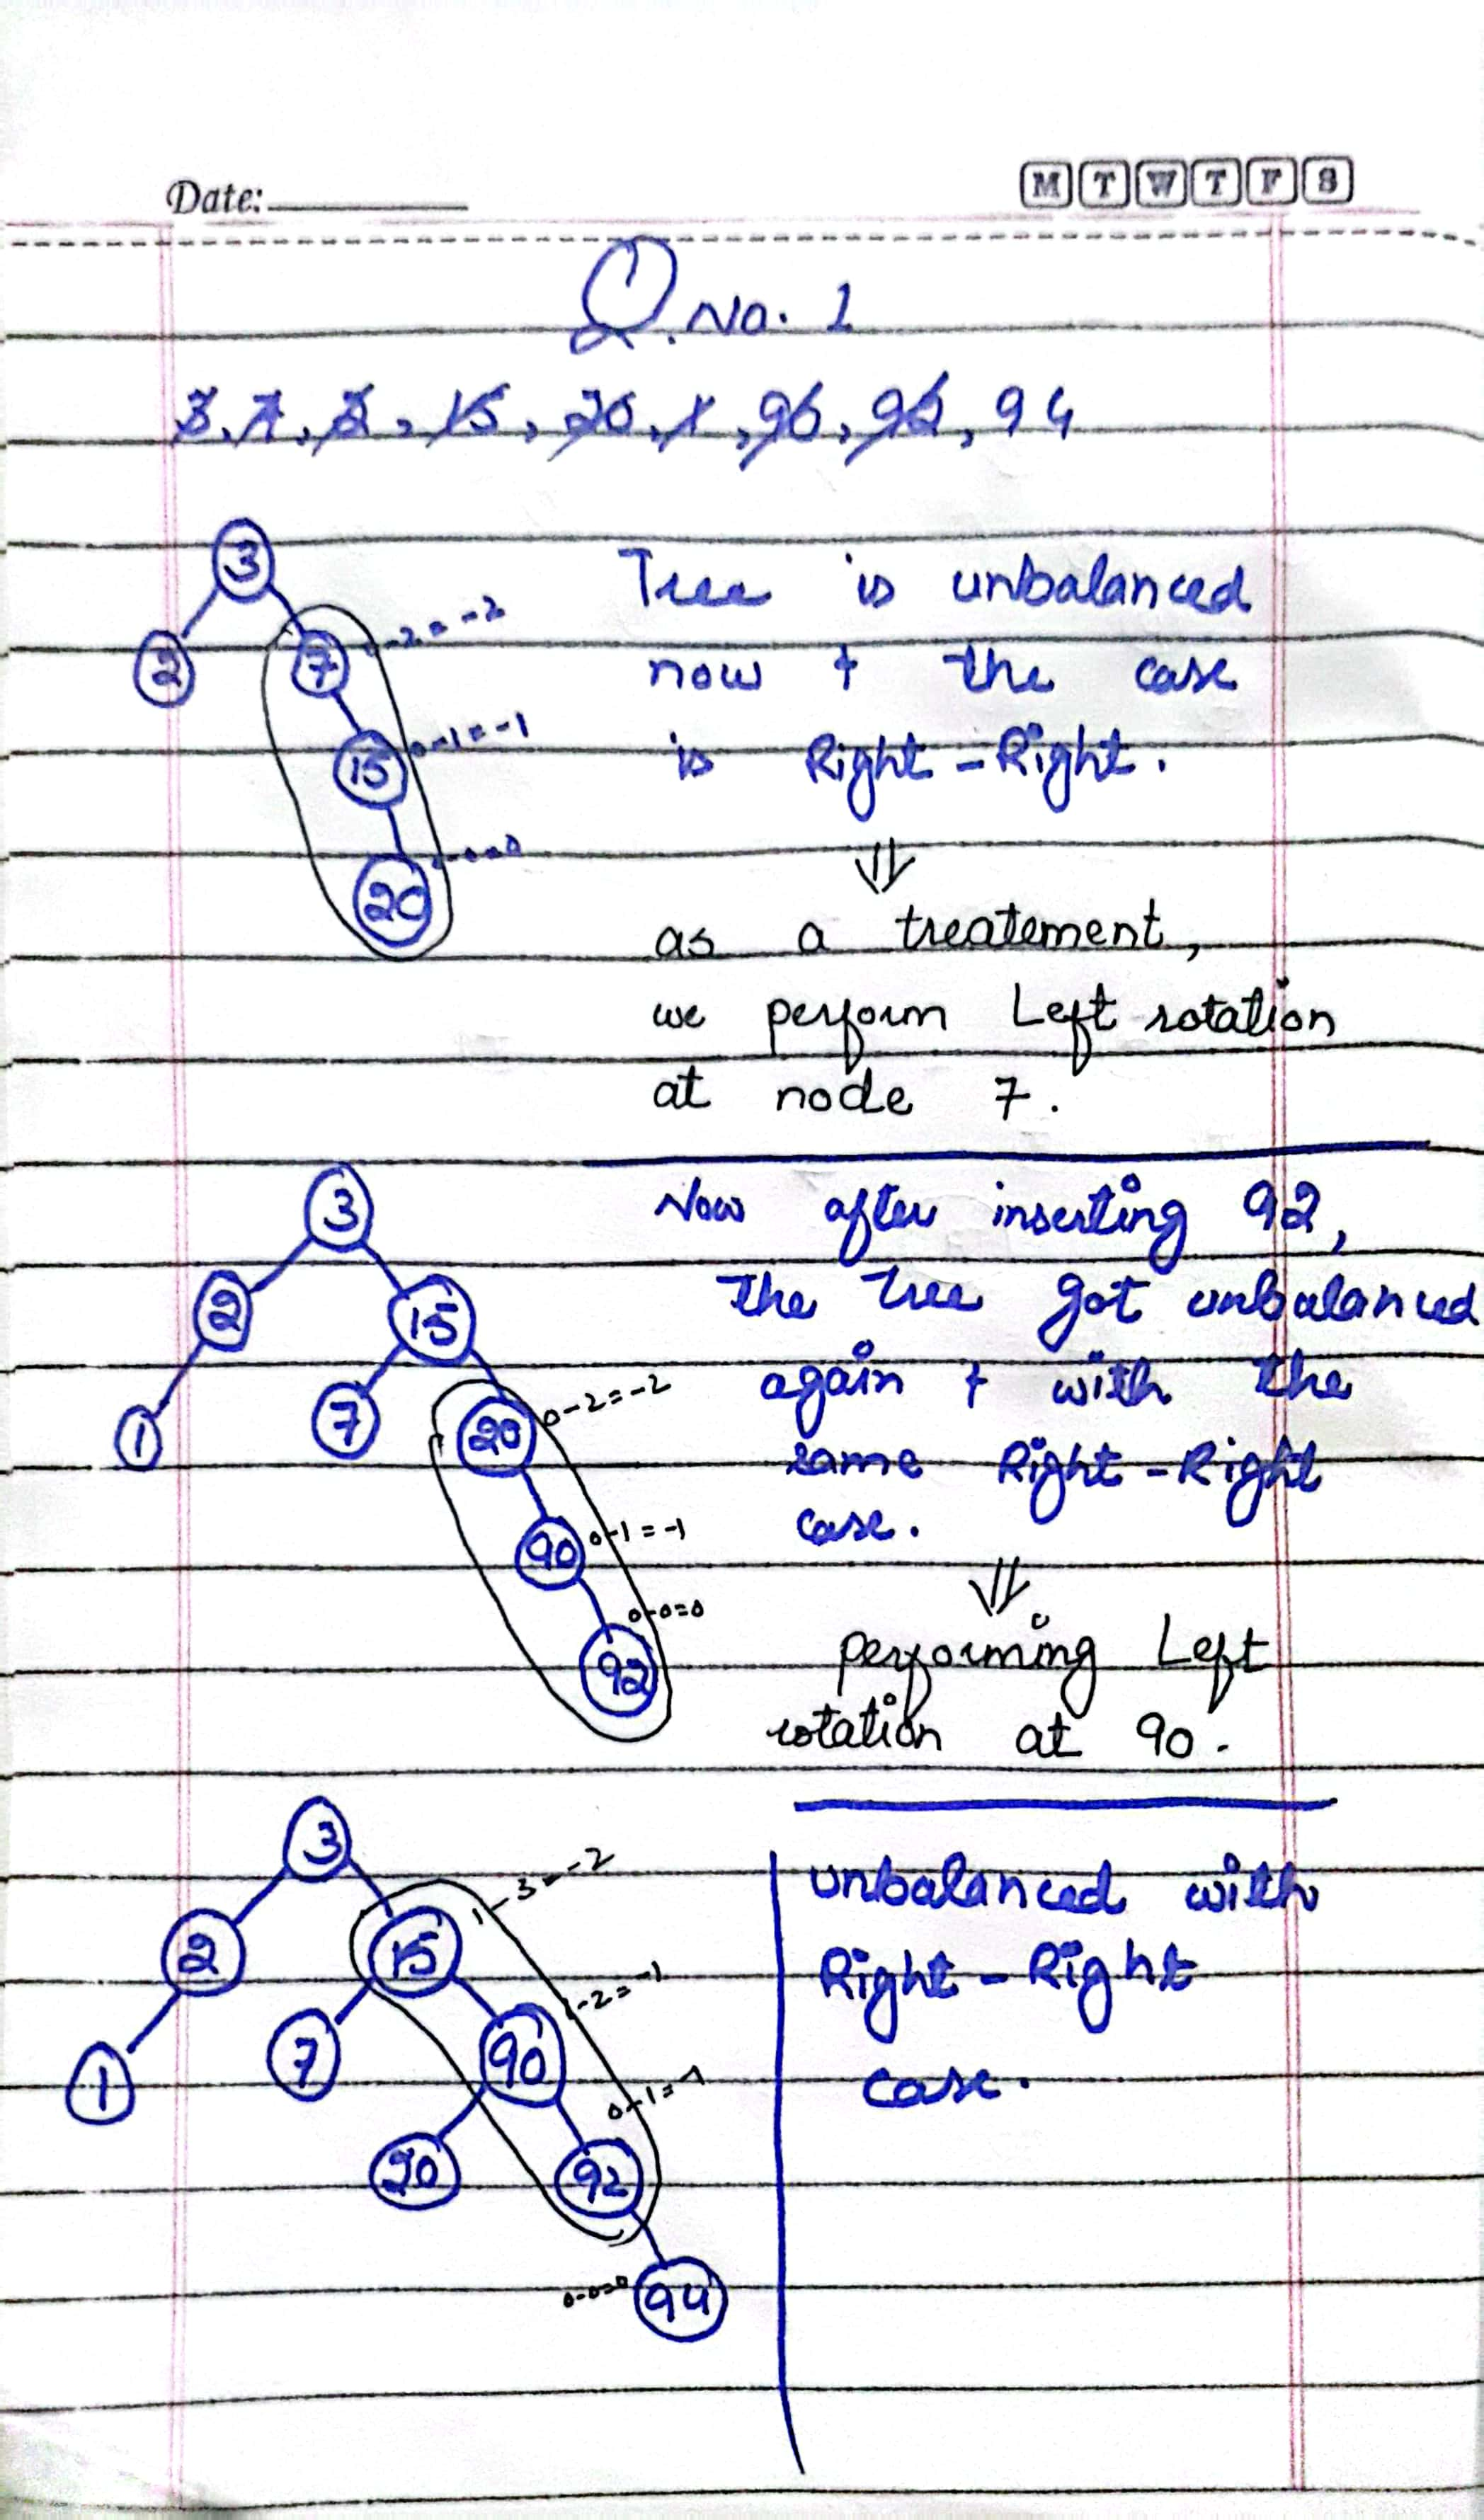 Date:
M T W T F S
Q. No. 1
3, 7, 2, 15, 20, 1, 90, 92, 94
3
2
7
-2 = -2
15
0-1 = -1
20
Tree is unbalanced
now + the case
is Right-Right.
⇓
as a treatement,
we perform Left rotation
at node 7.
3
2
15
1
7
20
0-2=-2
90
0-1=-1
0-0=0
92
Now after inserting 92,
the tree got unbalanced
again + with the
same Right-Right
case.
⇓
performing Left
rotation at 90.
3
2
15
1-3=-2
1
7
90
1-2=-1
20
92
0-1=-1
94
0-0=0
unbalanced with
Right-Right
case.